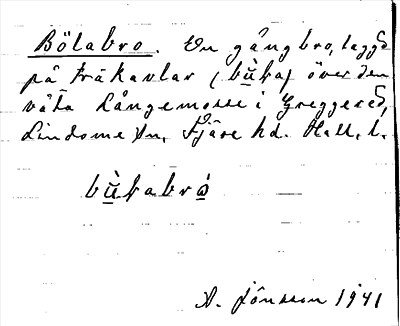 Bölabro. En gångbro, laggd
på träkavlar (bù̲ka) över den
våta Långemosse i Greggered,
Lindome sn, Fjäre hd. Hall. l.
bù̲kabró̲
A. Jönsson 1941